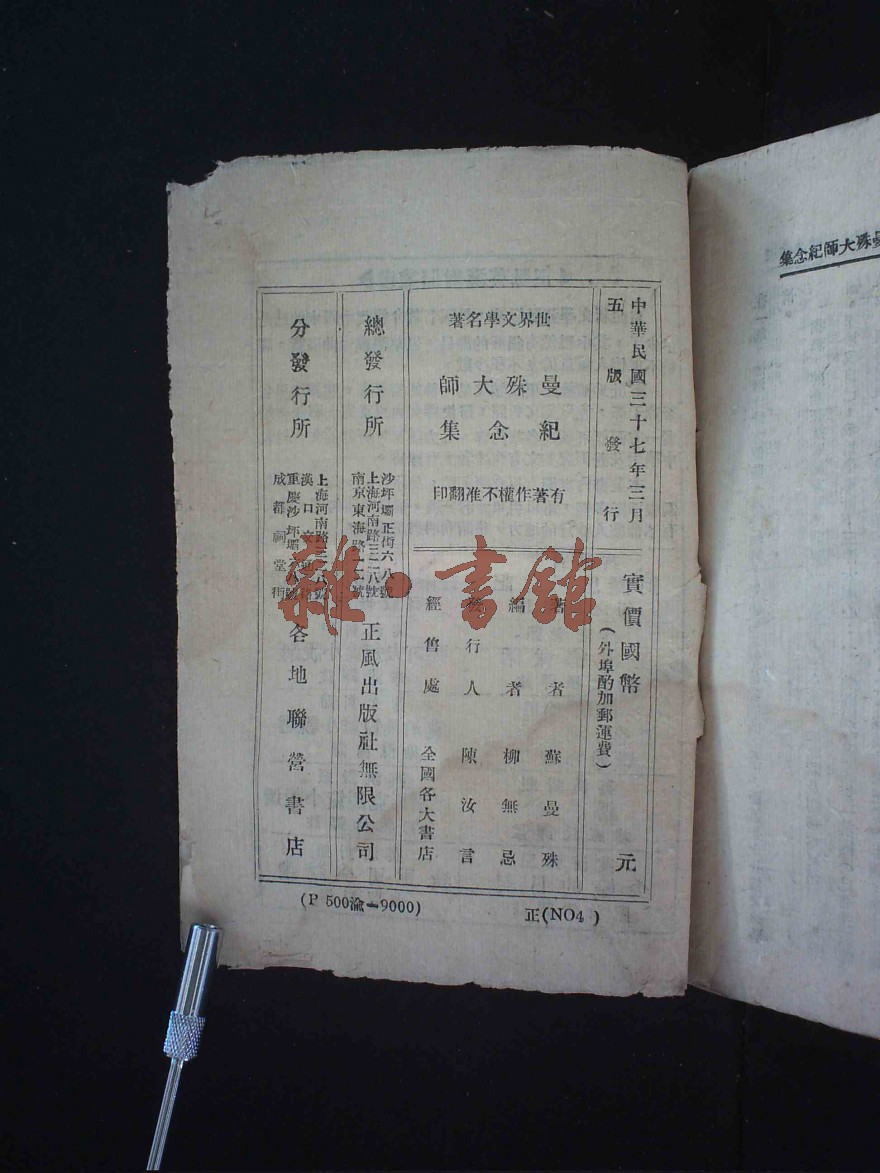 曼殊大師紀念集
中華民國三十七年三月
五版發行
實價國幣 元
(外埠酌加郵運費)
世界文學名著
曼殊大師
紀念集
有著作權不准翻印
著者 蘇曼殊
編者 柳無忌
發行人 陳汝言
經售處 全國各大書店
總發行所
沙坪壩正街六八號
上海河南路三二八號
南京東海路一二號
正風出版社無限公司
分發行所
上海河南路三二八號
漢口
重慶沙坪壩六八號
成都祠堂街
各地聯營書店
(P 500渝—9000)
正(NO4 )
雜·書館